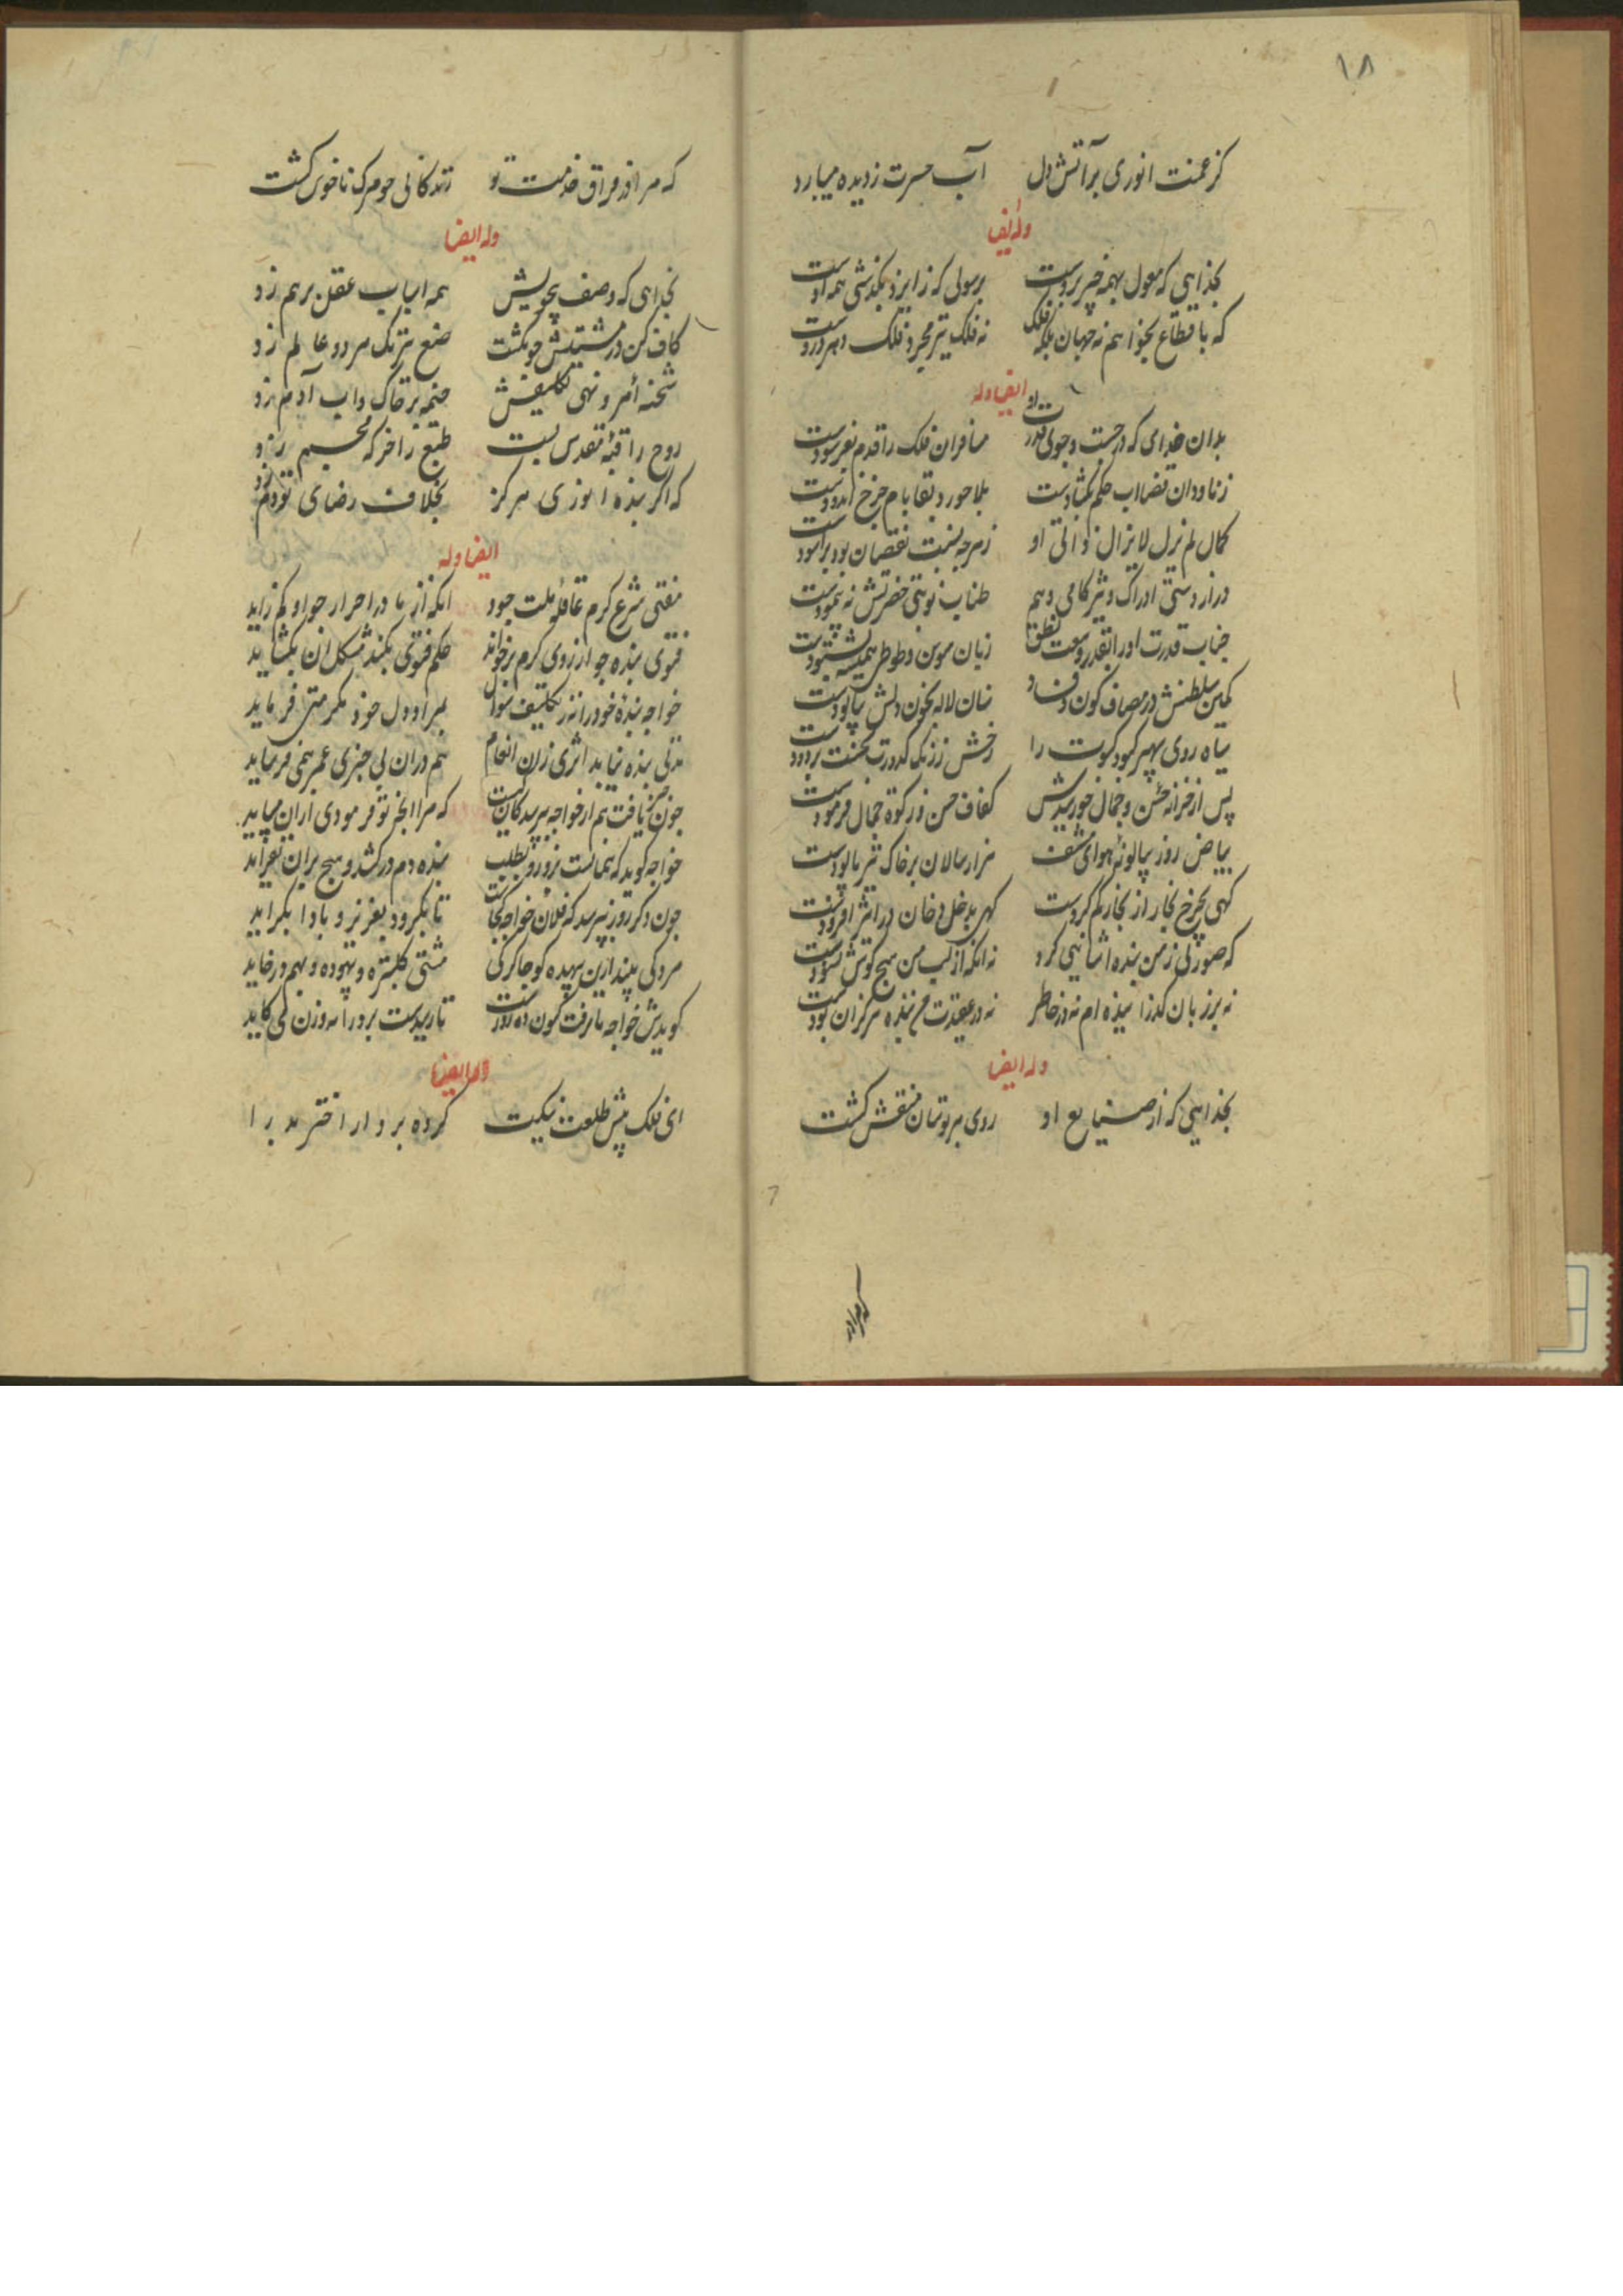 ۱۸
کز غمت انوری بر آتش دل آب حسرت ز دیده میبارد
وله ایضا
بخدایی که معول بهمه خیر بروست برسولی که ز ایزد بگذشتی همه اوست
که باقطاع بخواهم نه جهان بلکه فلک نه فلک نیز مجرد فلک و هر درو دوست
ایضا وله
بدان خدای که در جست و جوی قدرت او مسافران فلک را قدم بفرسودست
زناودان قضا آب حکم بگشادست بلاجورد بقا بام چرخ اندودست
کمال لم یزل لا یزال ذاتی او زهرچه نسبت نقصان بود بر آسودست
دراز دستی ادراک و تیز کامی وهم طناب نوبتی حضرتش نه پیمودست
جناب قدرت او را بقدر وسعت نطق زبان سوسن و طوطی همیشه بستودست
کمین سلطنتش در مصاف کون و فساد سنان لاله بخون دلش بیالودست
سیاه روی سپهر کبود کسوت را رخش ز زنگ کدورت بزدودست
پس از خزانه حسن و جمال خورشیدش کفاف حسن و زکوة جمال فرمودست
بیاض روز بپالونهٔ هوای مشف هزار سالان بر خاک تیره پالودست
گهی بچرخ بخار از بخار کم کردست گهی بدخل دخان در اثیر افزودست
که صورتی ز من بنده اشنانیی کرد نه انکه از لب من هیچ گوش نشنودست
نه بر زبان گذرانیده ام نه در خاطر نه در عقیدت من بنده هرگز ان بودست
وله ایضا
بخدایی که از صنایع او روی هر بوستان منقش گشت
که مرا در
که مرا در فراق خدمت تو زندکانی چو مرک ناخوش گشت
وله ایضا
بخدای که وصف بیچونیش همه اسباب عقل برهم زد
کاف کن در مشیتش چو بگشت صنع بیرنک هر دو عالم زد
شحنه امر و نهی تکلیفش خیمه بر خاک و آب آدم زد
روح را قبهٔ مقدس بست طبع را خرگه مجسم زد
که اگر بنده انوری هرگز بخلاف رضای تو دم زد
ایضا وله
مفتی شرع کرم عاقلهٔ ملت جود انکه از مادر احرار جواو کم زاید
فتوی بنده جو از روی کرم برخواند حکم فتوی بکند مشکل ان بگشاید
خواجه بنده خود را نه ز تکلیف سوال بمراد دل خود مکرمتی فرماید
مدتی بنده نیابد اثری زان انعام هم دران بی خبری عمر همی فرساید
جون خبر یافت هم از خواجه بپرسد کان چیست که مرا انجه تو فرمودی ازان می باید
خواجه گوید که بنماست برو رو بطلب بنده دم درکشد و هیچ بران نفزاید
جون دکر روز بپرسد که فلان خواجه کجاست تا بگیرد و بغرنرد و با ما بگراید
مردکی بیند ازین بیهده گو جاکرکی مشتی گلبتره و بیهوده و بهم درخاید
گویدش خواجه ما رفت کنون ده روزست تا رسیدست برو را به و زن کی گاید
وله ایضا
ای فلک پیش طلعت نیکت کرده بردار اختر بد را